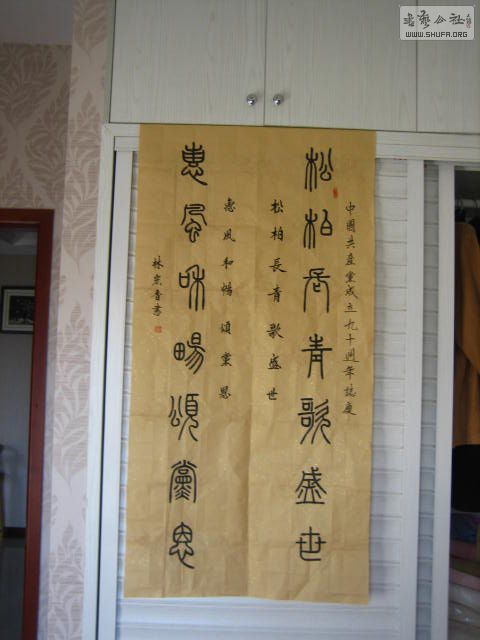 中國共産黨成立九十週年誌慶
松柏長青歌盛世
松柏長青歌盛世
惠風和暢頌黨恩
惠風咊暢頌黨恩
林宗香書
書藝公社
WWW.SHUFA.ORG